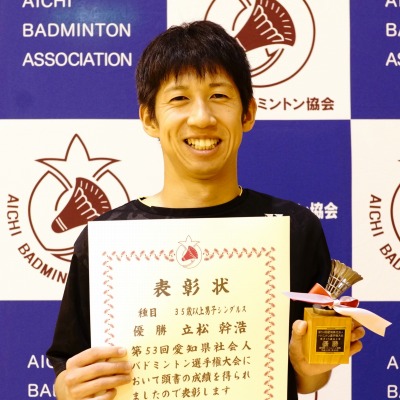 AICHI
BADMINTON
ASSOCIATION
AICHI
BADMINTON
ASSOCIATION
バドミントン協会
AICHI BADMIN
表彰状
種目 35歳以上男子シングルス
優勝 立松 幹浩
第53回愛知県社会人
バドミントン選手権大会に
おいて頭書の成績を得られ
ましたので表彰します
優勝